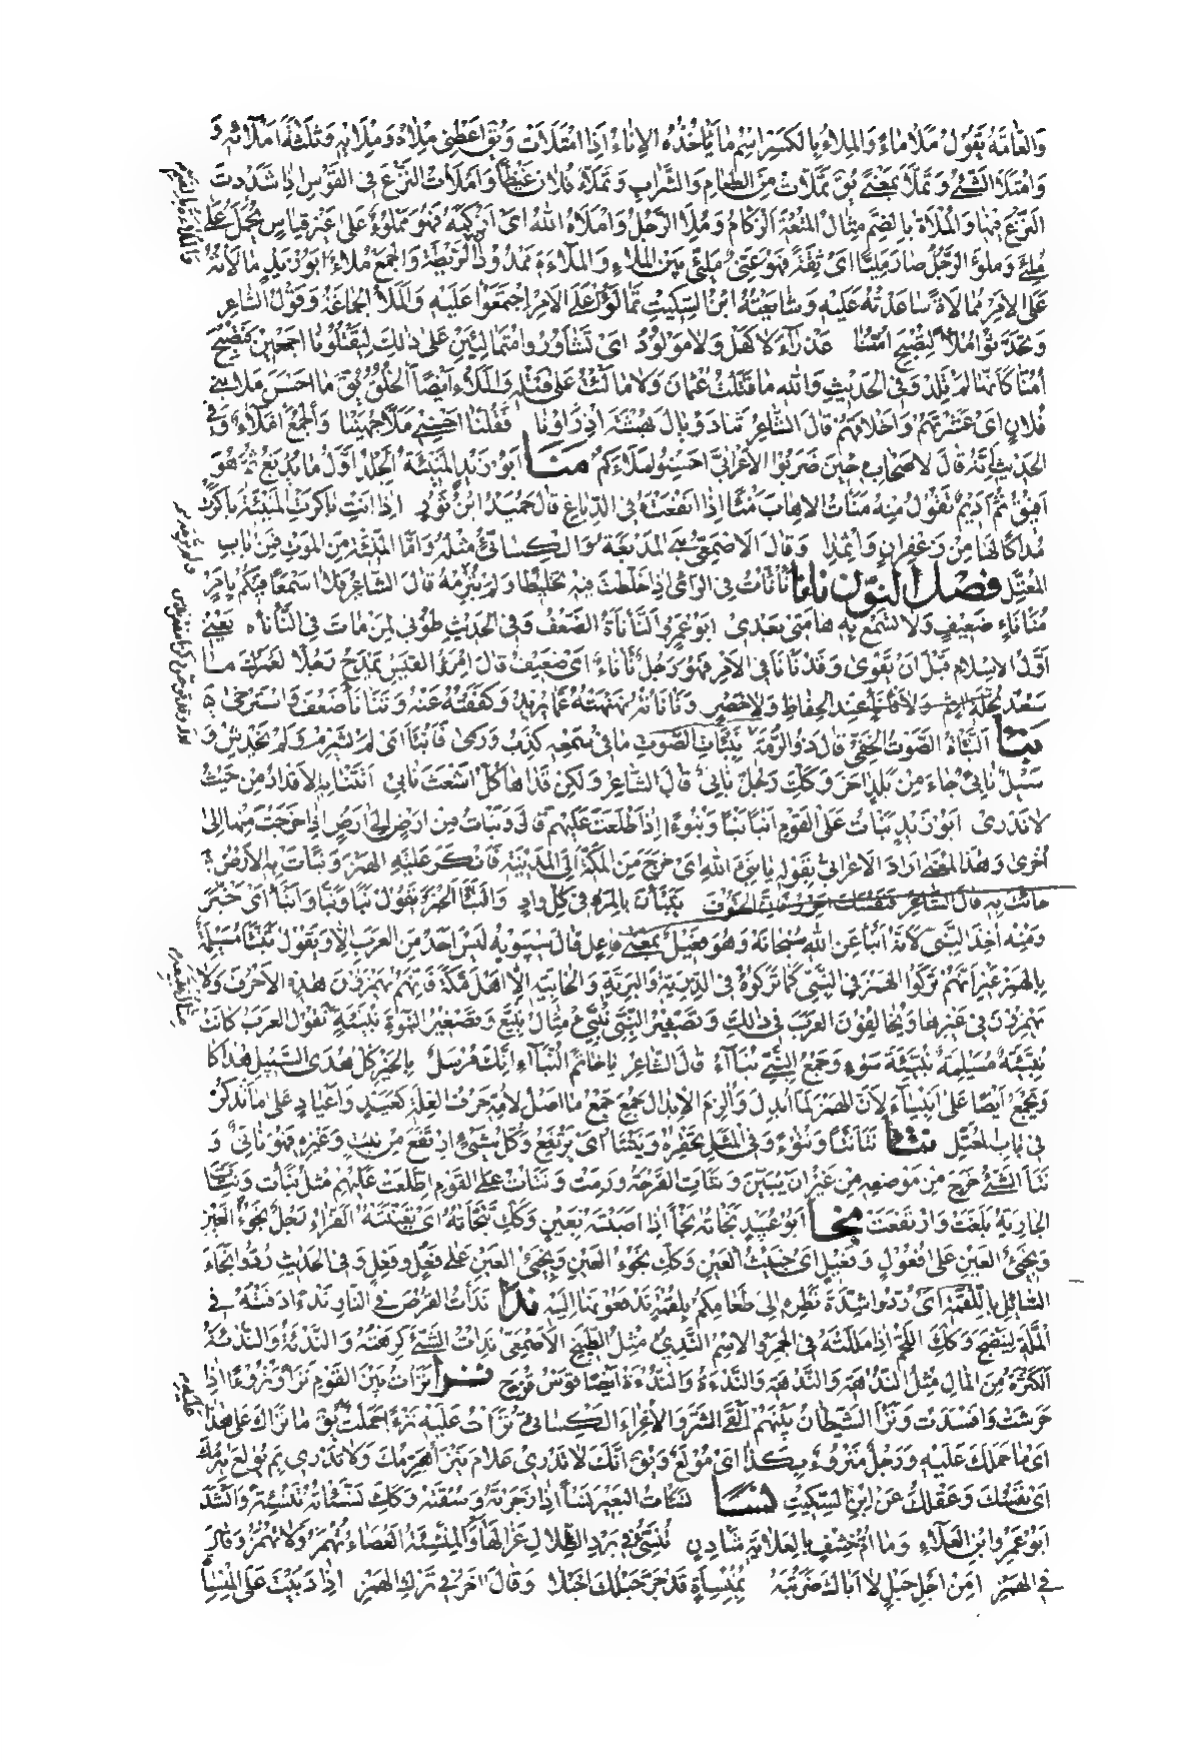 والعامة يقول ملا ماء والملاء بالكسر اسم ما يأخذه الاناء اذا امتلات ويق اعطنى ملاه وملايه وثلثة املائه و
وامتلا الشئ وتملا بمعنى يق تملات من الطعام والشراب وتملاء فلان غيظا واملات النزع فى القوس اذا شددت
النزع فيها والملاة بالضم مثال المتعة الزكام وملا الرجل واملاه الله اى ازكمه فهو مملوء على غير قياس يحمل على
ملئ وملوء الرجل صار مليئا اى ثقة فهو غنى ملئ بين الملاء والملاءة ممدوذ الريطة والجمع ملاء ابو زيد مالاته
على الامر ممالاة ساعدته عليه وشايعته ابن السكيت تمالوا على الامر اجتمعوا عليه والملا الجماعة وقول الشاعر
وتحدثوا ملا لتصبح امنا عذراء لا كهل ولا مولود اى تشاوروا متمالئين على ذالك ليقتلونا اجمعين فتصبح
امنا كانها لم تلد وفى الحديث والله ما قتلت عثمان ولا مالات على قتله والملاء ايضا الخلق يق ما احسن ملا بنى
فلان اى عشرتهم واخلاقهم قال الشاعر تنادوا يال بهثة اذ راونا فقلنا احسنى ملا جهينا والجمع املاء وفى
الحديث انه قال لاصحابه حين ضربوا الاعرابى احسنوا ملاءكم منا ابو زيد المنيئة الجلد اول ما يدبغ ثم هو
افيق ثم اديم تقول منه منات الاهاب منا اذا انقعته فى الدباغ قال حميد ابن ثور اذا انت باكرت المنيئة باكرت
مداكا لها من زعفران واثمدا وقال الاصمعى هى المدبغة والكسائى مثله واما المنية من الموت فمن باب
المعتل فصل النون نانا نانات فى الراى اذا خلطت فيه تخليطا ولم تبرمه قال الشاعر فلا اسمعا فيكم بامر
مناناء ضعيف ولا تسمع به هامتى بعدى ابو عمرو النانأة الضعف وفى الحديث طوبى لمن مات فى النأنأة يعنى
اول الاسلام قبل ان يقوى وقد نانا فى الامر فهو رجل نأناء اى ضعيف قال امرؤ القيس يمدح رجلا لعمرك ما
سعد بخلة اثم ولا نانا عند الحفاظ ولا حصر ونانانه نهنهته عما يريد وكففته عنه وتنانا ضعف واسترخى
نبا النبأة الصوت الخفى قال ذو الرمة بنبأة الصوت ما فى سمعه كذب ورمى فانبا اى لم يشرم ولم يخدش و
سيل نابئ جاء من بلد اخر وكذلك رجل نابئ قال الشاعر ولكن قذاها كل اشعث نابئ اتتنا به الاقدار من حيث
لا ندرى ابو زيد نبات على القوم انبا نبا ونبوءا اذا طلعت عليهم قال ونبات من ارض الى ارض اذا خرجت منها الى
اخرى وهذا المعنى اراد الاعرابى بقوله يا نبئ الله اى خرج من المكة الى المدينة فانكر عليه الهمز ونبات به الارض
جائت به قال الشاعر بالمرء فى كل واد والنبا الخبر تقول نبا ونبا وانبا اى خبر
ومنه اخذ النبى لانه انبأ عن الله سبحانه وهو فعيل بمعنى فاعل قال سيبويه ليس احد من العرب الا ويقول تنبأ مسيلمة
بالهمز غير انهم تركوا الهمز فى النبى كما تركوه فى الذرية والبرية والخابية الا اهل مكة فانهم يهمزون هذه الاحرف ولا
يهمزون فى غيرها ويخالفون العرب فى ذالك وتصغير النبى نبيئ مثال نبيع وتصغير النبوة نبيئة تقول العرب كانت
نبيئة مسيلمة نبيئة سوء وجمع النبئ نباآء قال الشاعر يا خاتم النباآء انك مرسل بالخير كل هدى السبيل هداكا
ويجمع ايضا على انبياء لان الهمز لما ابدل والزم الابدال جمع جمع ما اصل لامه حرف العلة كعيد واعياد على ما نذكره
فى باب المعتل نتا نتا نتا ونتوء وفى المثل تحقره وينتا اى يرتفع وكل شئ ارتفع من نبت وغيره فهو ناتئ و
نتا الشئ خرج من موضعه من غير ان يبين ونتات القرحة ورمت ونتات على القوم اطلعت عليهم مثل نبات ونتات
الجارية بلغت وارتفعت نجا ابو عبيد نجاته نجأ اذا اصبته بعين وكك تنجاته اى تعينته الفراء رجل نجوء العين
ونجئ العين على فعول وفعيل اى خبيث العين وكك نجوء العين ونجئ العين على فعل وفعل وفى الحديث ردوا نجاة
السائل باللقمة اى ردوا شدة نظره الى طعامكم بلقمة تدفعونها اليه ندا ندأت القرص فى النار ندء ادفنته فى
الملة لينضج وكك اللحم اذا مللته فى الجمر والاسم الندئ مثل الطبيخ الاصمعى ندات الشئ كرهته والندئة والندئة
الكثرة من المال مثل الندهة والندهة والندءة والندءة ايضا قوس قزح نزا نزات بين القوم نزا ونزوءا اذا
حرشت وافسدت ونزا الشيطان بينهم القى الشر والاغراء الكسائى نزات عليه نزء احملت يق ما نزاك على هذا
اى ما حملك عليه ورجل منزوء بكذا اى مولع ويق انك لا تدرى علام ينزأ هرمك ولا تدرى بم يولع هرمك
اى نفسك وعقلك عن ابن السكيت نسا نسات البعير نسأ اذا زجرته وسقته وكك نسئاته تنسئة وانشد
ابو عمرو ابن العلاء وما ام خشف بالعلاية شادن تنسئ فى برد الظلال غزالها والمنسئة العصاء يهمز ولا يهمز وقال
فى الهمز امن اجل حبل لا اباك ضربته بمنسأة قد جر حبلك احبلا وقال اخر فى ترك الهمز اذا دببت على المنساة